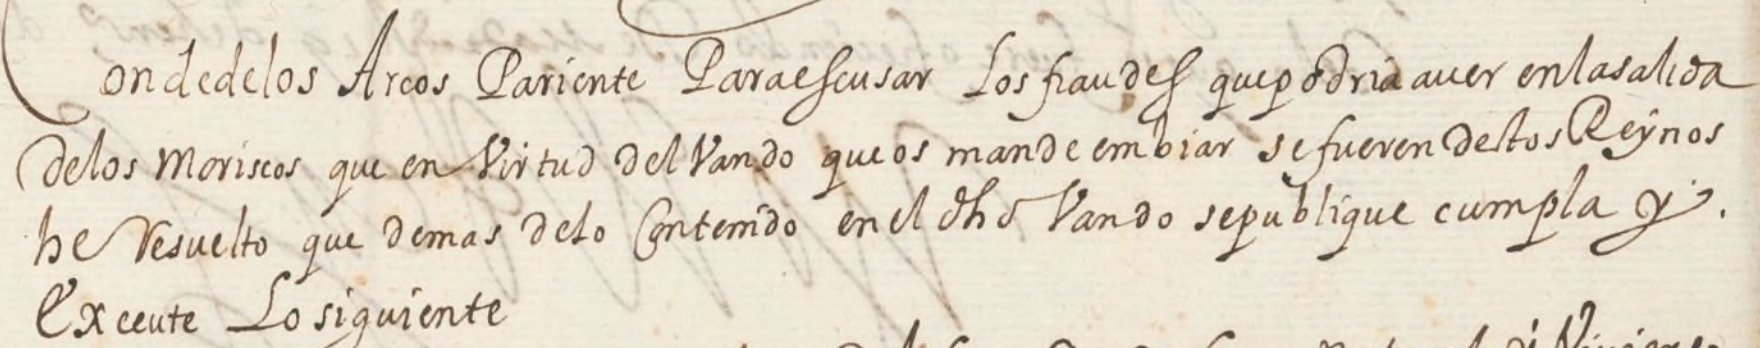 Conde de los Arcos Pariente Para escusar Los fraudes que podria auer en la salida
de los Moriscos que en Virtud del Vando que os mande embiar se fueren destos Reynos
he Resuelto que demas de lo Contenido en el dho Vando se publique cumpla y.
Execute Lo siguiente